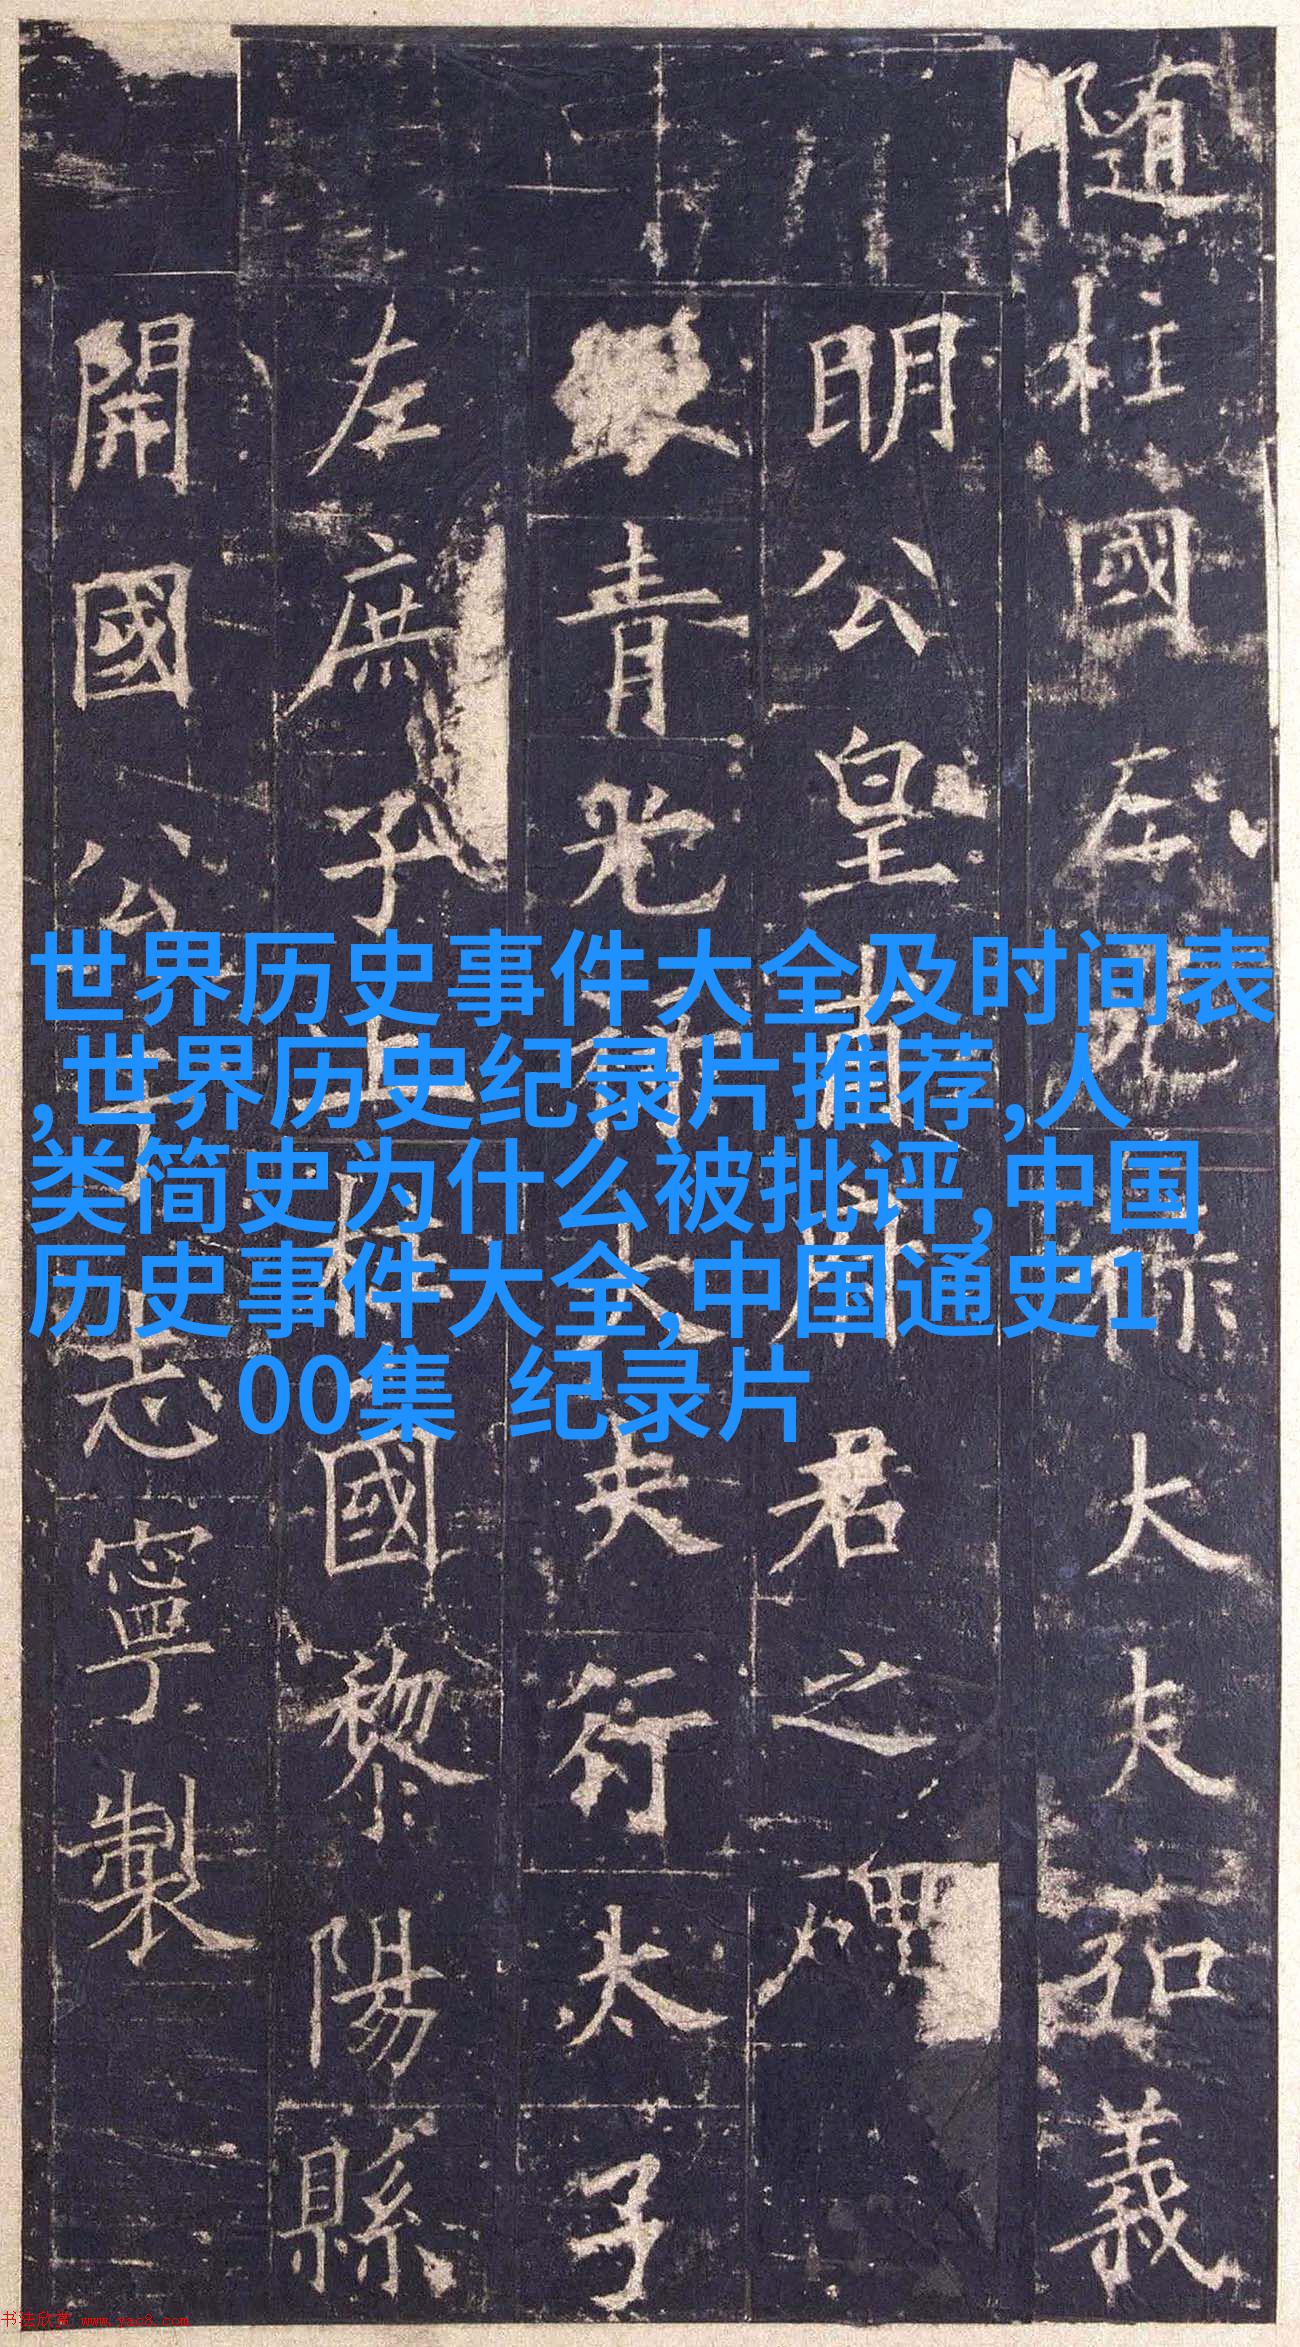 隨柱國左光祿大夫弘義
明公皇甫府君之碑
銀青光祿大夫行太子
左庶子上柱國黎陽縣
開國公于志寧製
世界历史事件大全及时间表
,世界历史纪录片推荐,人
类简史为什么被批评,中国
历史事件大全,中国通史1
00集 纪录片
书法欣赏 www.yac8.com